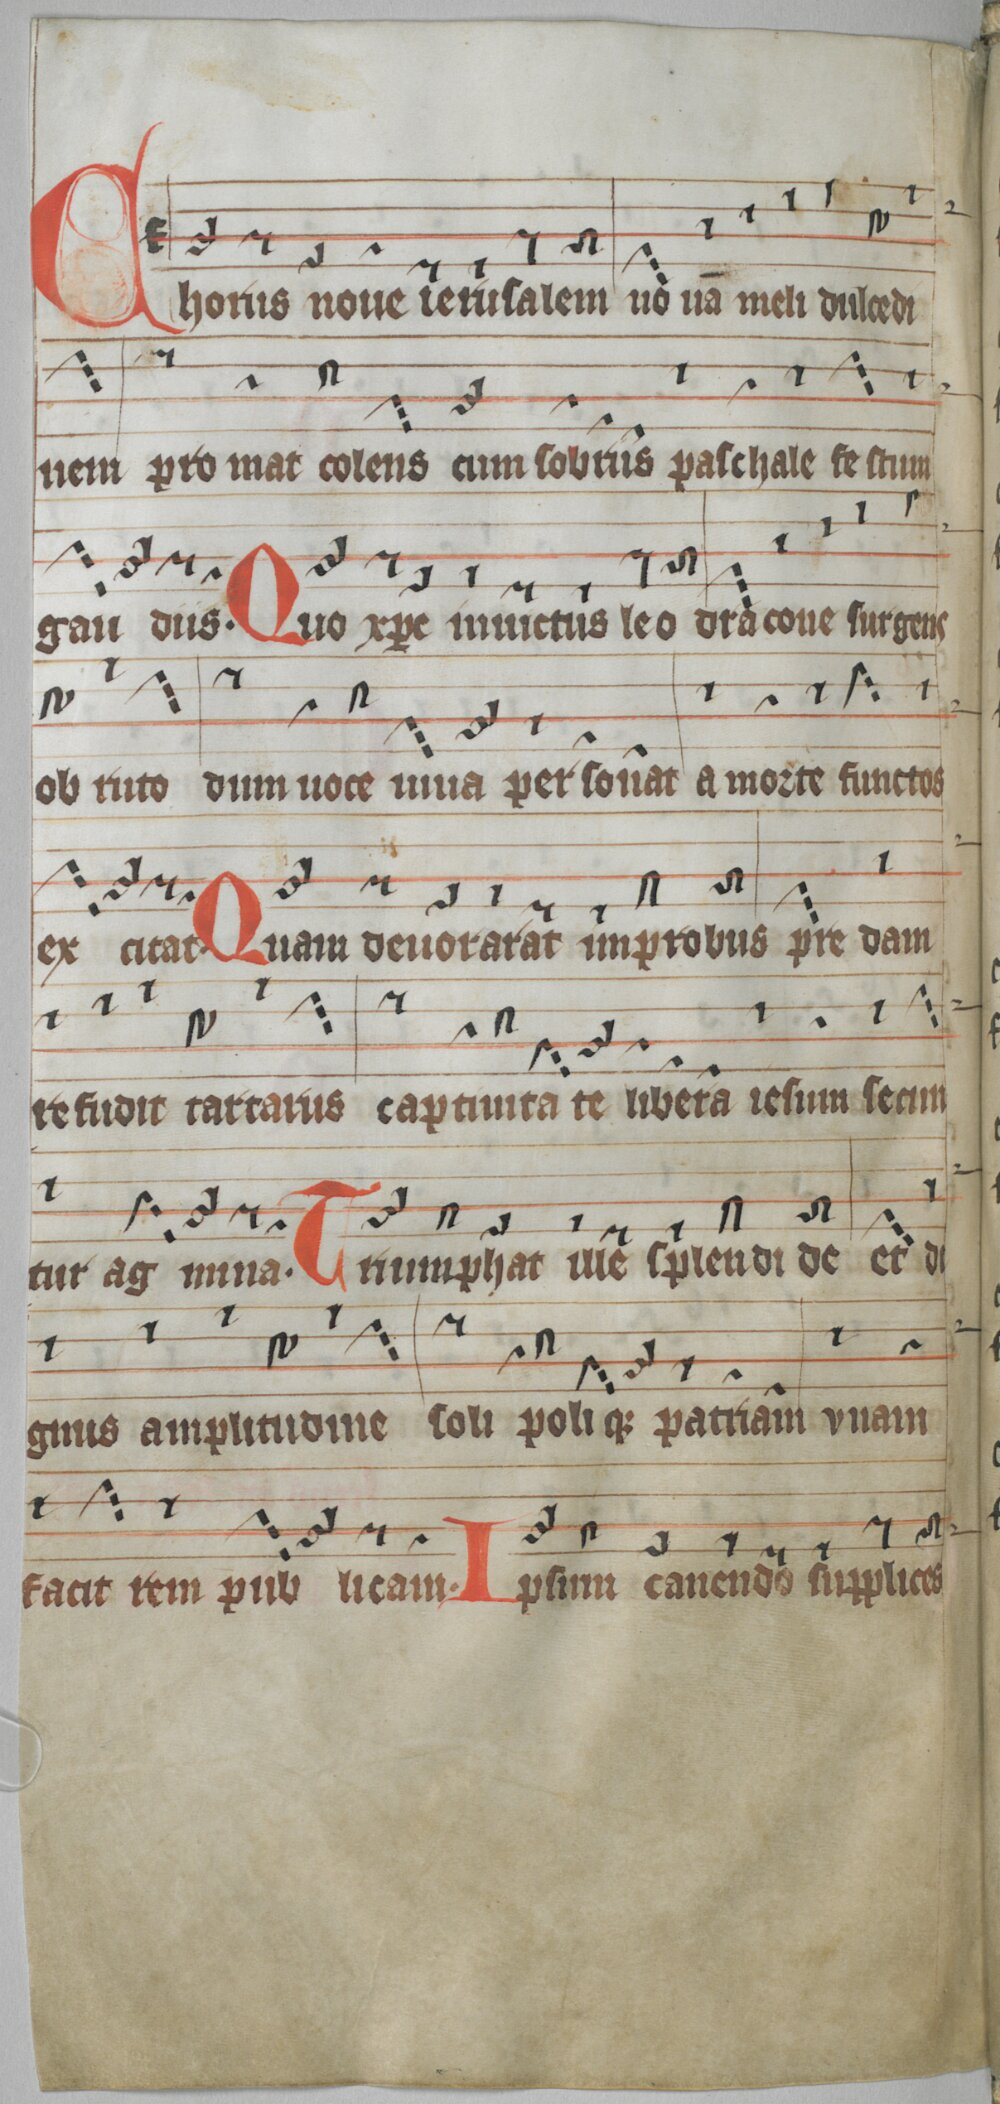 Chorus noue ierusalem uo uā meli dulcedi
nem pro mat colens cum sobriis paschale festum
gau diis. Quo xp̄c inuictus leo dracone surgens
ob ruto dum uoce uiua per sonat a morte functos
ex citat. Quam deuorarat improbus pre dam
refudit tartarus captiuita te libera iesum secun
tur ag mina. Triumphat ille splendi de et di
gnus amplitudine soli poli qꝫ patriam vnam
facit rem pub licam. Ipsum canendo supplices